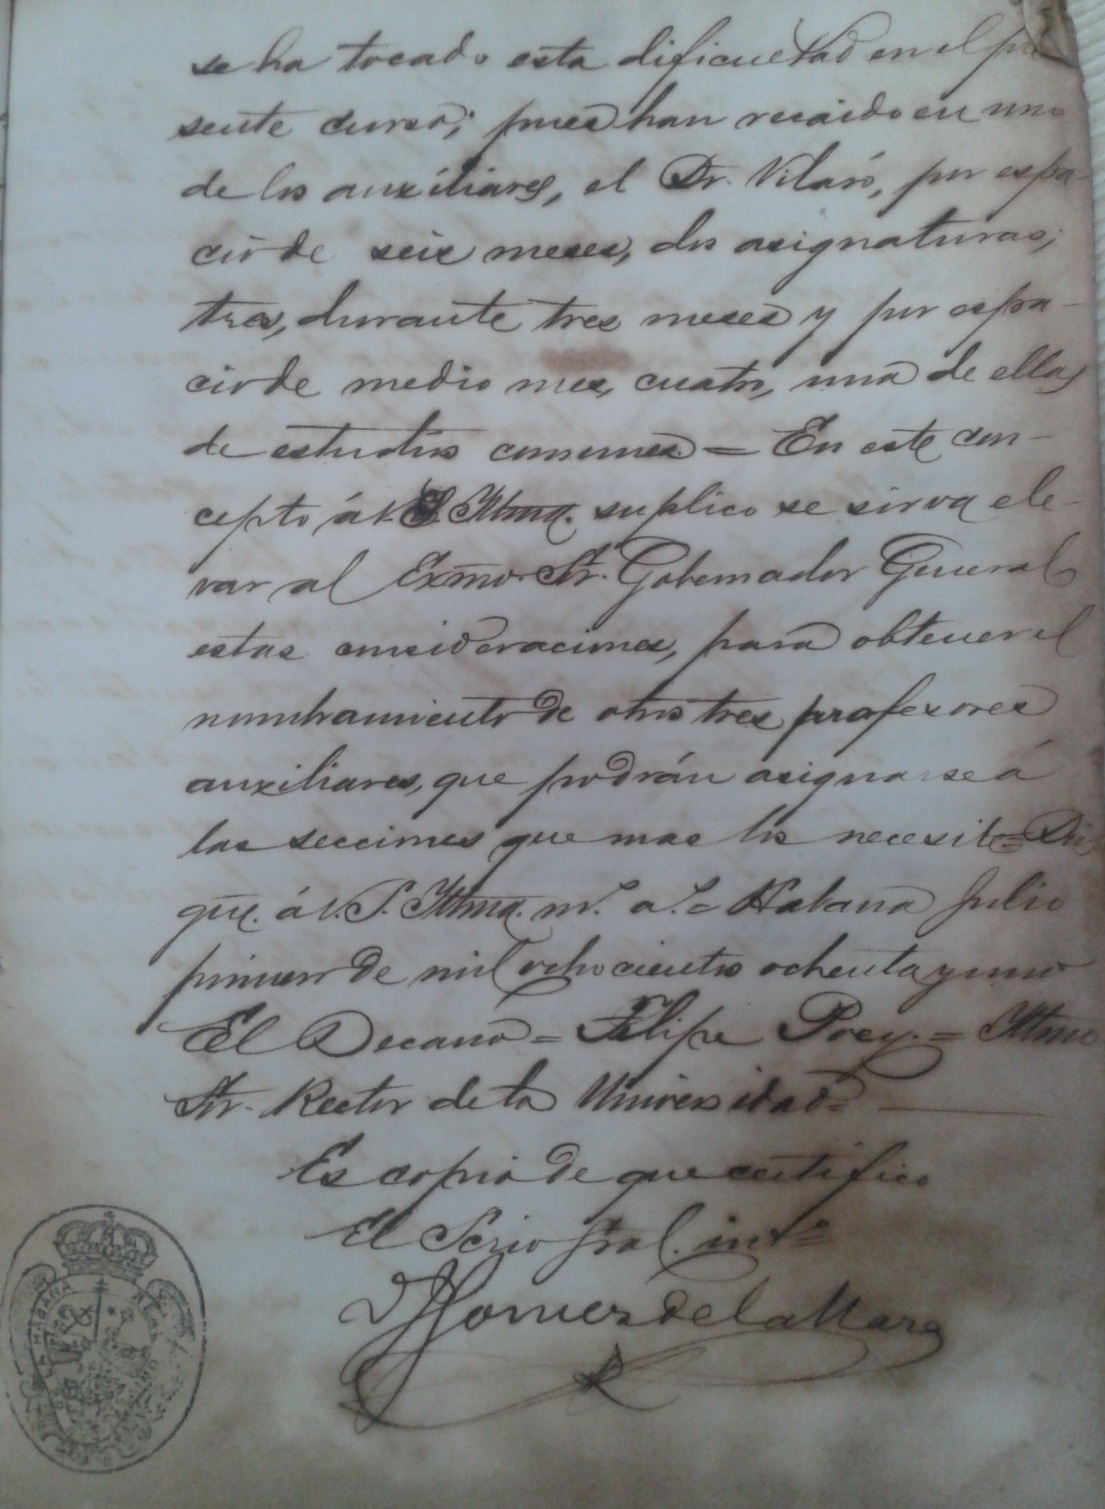 se ha tocado esta dificultad en el pre
sente curso; pues han recaido en uno
de los auxiliares, el Dr. Vilaró, por espa-
cio de seis meses, dos asignaturas;
tres, durante tres meses y por espa-
cio de medio mes, cuatro, una de ellas
de estudios comunes = En este con-
cepto á V. S. Iltma. suplico se sirva ele-
var al Exmo. Sr. Gobernador General
estas consideraciones, para obtener el
nombramiento de otros tres profesores
auxiliares, que podrán asignarse á
las secciones que mas los necesite = Dios
gue. á V. S. Iltma. ms. as. = Habana Julio
primero de mil ochocientos ochenta y uno
El Decano = Felipe Poey. = Iltmo
Sr. Rector de la Universidad =
Es copia de que certifico
El Serio Gral. into
Gomez de la Maza
HABANA